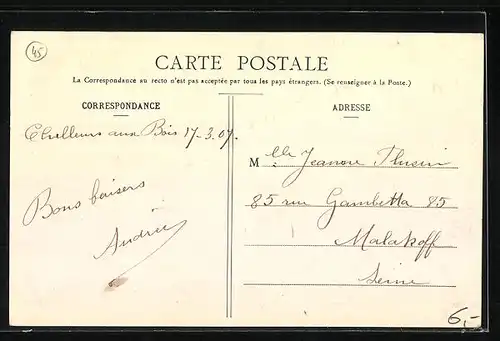 45
CARTE POSTALE
La Correspondance au recto n'est pas acceptée par tous les pays étrangers. (Se renseigner à la Poste.)
CORRESPONDANCE
ADRESSE
Chilleurs aux Bois 17-3.07.
Bons baisers
Andrée
Mlle Jeanne
85 rue Gambetta 85
Malakoff
Seine
6,-